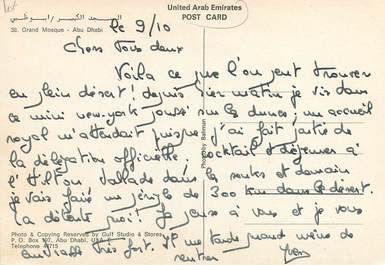 المسجد الكبير - ابوظبي
38. Grand Mosque - Abu Dhabi
United Arab Emirates
POST CARD
le 9/10
Chers tous deux
Voilà ce que l'on peut trouver
en plein désert ! depuis hier matin je vis dans
ce mini new-york poussé sur les dunes, un accueil
royal m'attendait puisque j'ai fait partie de
la délégation officielle, cocktail déjeuner à
l'Hilton ballade dans les souks et demain
je vais faire un périple de 300 km dans le désert.
la détente quoi ! Je pense à vous et je vous
embrasse très fort. P me tarde quand même de
rentrer
Yves
Photo by Bahman
Photo & Copying Reserved by Gulf Studio & Stores
P. O. Box 107, Abu Dhabi, U.A.E.
Telephone 41715